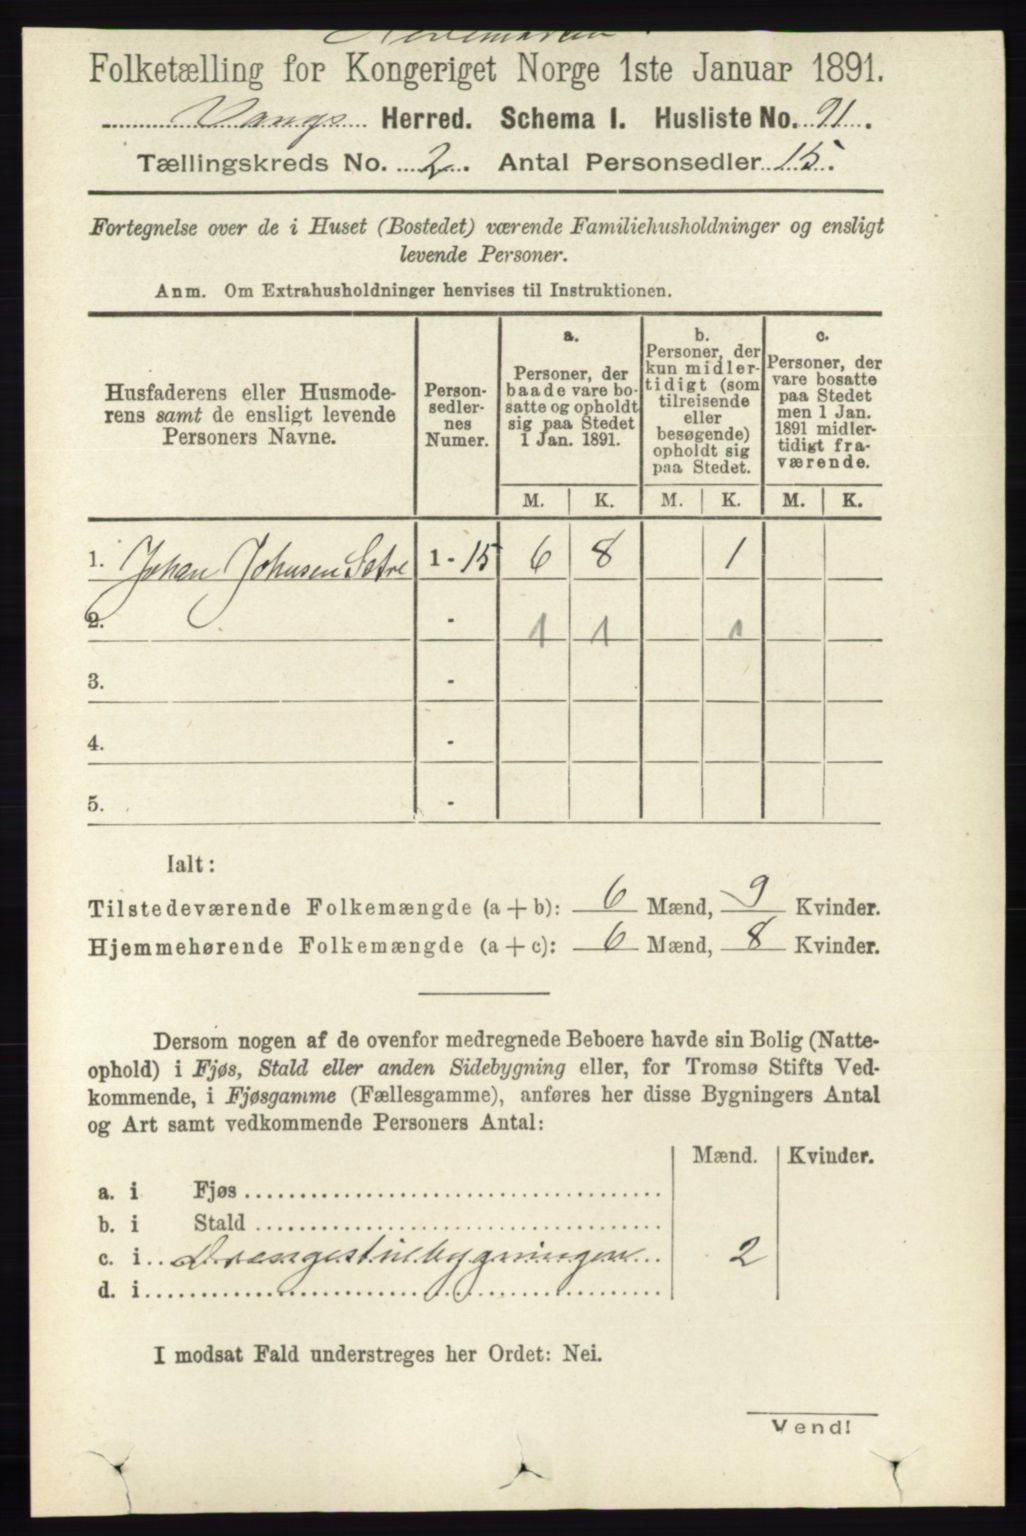 Hedemarken
Folketælling for Kongeriget Norge 1ste Januar 1891.
Vangs Herred. Schema I. Husliste No. 91.
Tællingskreds No. 2. Antal Personsedler 15.
Fortegnelse over de i Huset (Bostedet) værende Familiehusholdninger og ensligt
levende Personer.
Anm. Om Extrahusholdninger henvises til Instruktionen.
Husfaderens eller Husmode-
rens samt de ensligt levende
Personers Navne.
Person-
sedler-
nes
Numer.
a.
Personer, der
baade vare bo-
satte og opholdt
sig paa Stedet
1 Jan. 1891.
b.
Personer, der
kun midler-
tidigt (som
tilreisende
eller
besøgende)
opholdt sig
paa Stedet.
c.
Personer, der
vare bosatte
paa Stedet
men 1 Jan.
1891 midler-
tidigt fra-
værende.
M. K. M. K. M. K.
1. Johan Johnsen Sætre 1 - 15 6 8 1
2. - 1 1 1
3. -
4. -
5. -
Ialt:
Tilstedeværende Folkemængde (a + b): 6 Mænd, 9 Kvinder.
Hjemmehørende Folkemængde (a + c): 6 Mænd, 8 Kvinder.
Dersom nogen af de ovenfor medregnede Beboere havde sin Bolig (Natte-
ophold) i Fjøs, Stald eller anden Sidebygning eller, for Tromsø Stifts Ved-
kommende, i Fjøsgamme (Fællesgamme), anføres her disse Bygningers Antal
og Art samt vedkommende Personers Antal:
Mænd. Kvinder.
a. i Fjøs
b. i Stald
c. i Drengestubygningen 2
d. i
I modsat Fald understreges her Ordet: Nei.
Vend!